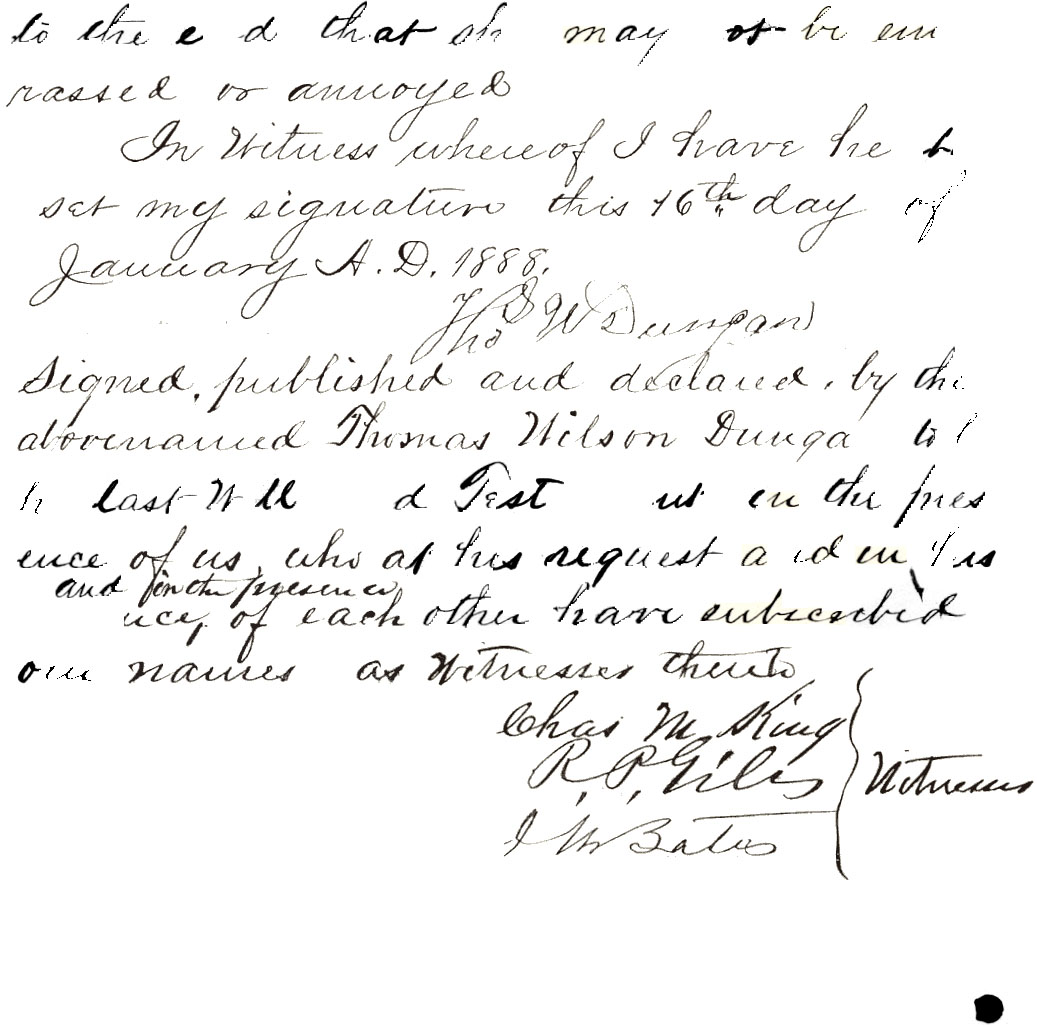 to the e d that sh may ot be em
rassed or annoyed
In Witness whereof I have he t
set my signature this 16th day of
January A.D. 1888.
Thos W Dungan
Signed, published and declared, by the
abovenamed Thomas Wilson Dunga to
h last W ll d Test nt in the pres
ence of us, who at his request a d in his
and in the presence
nce, of each other have subscribed
our names as Witnesses thereto
Chas M King
R. P. Giles
J W Bates
Witnesses